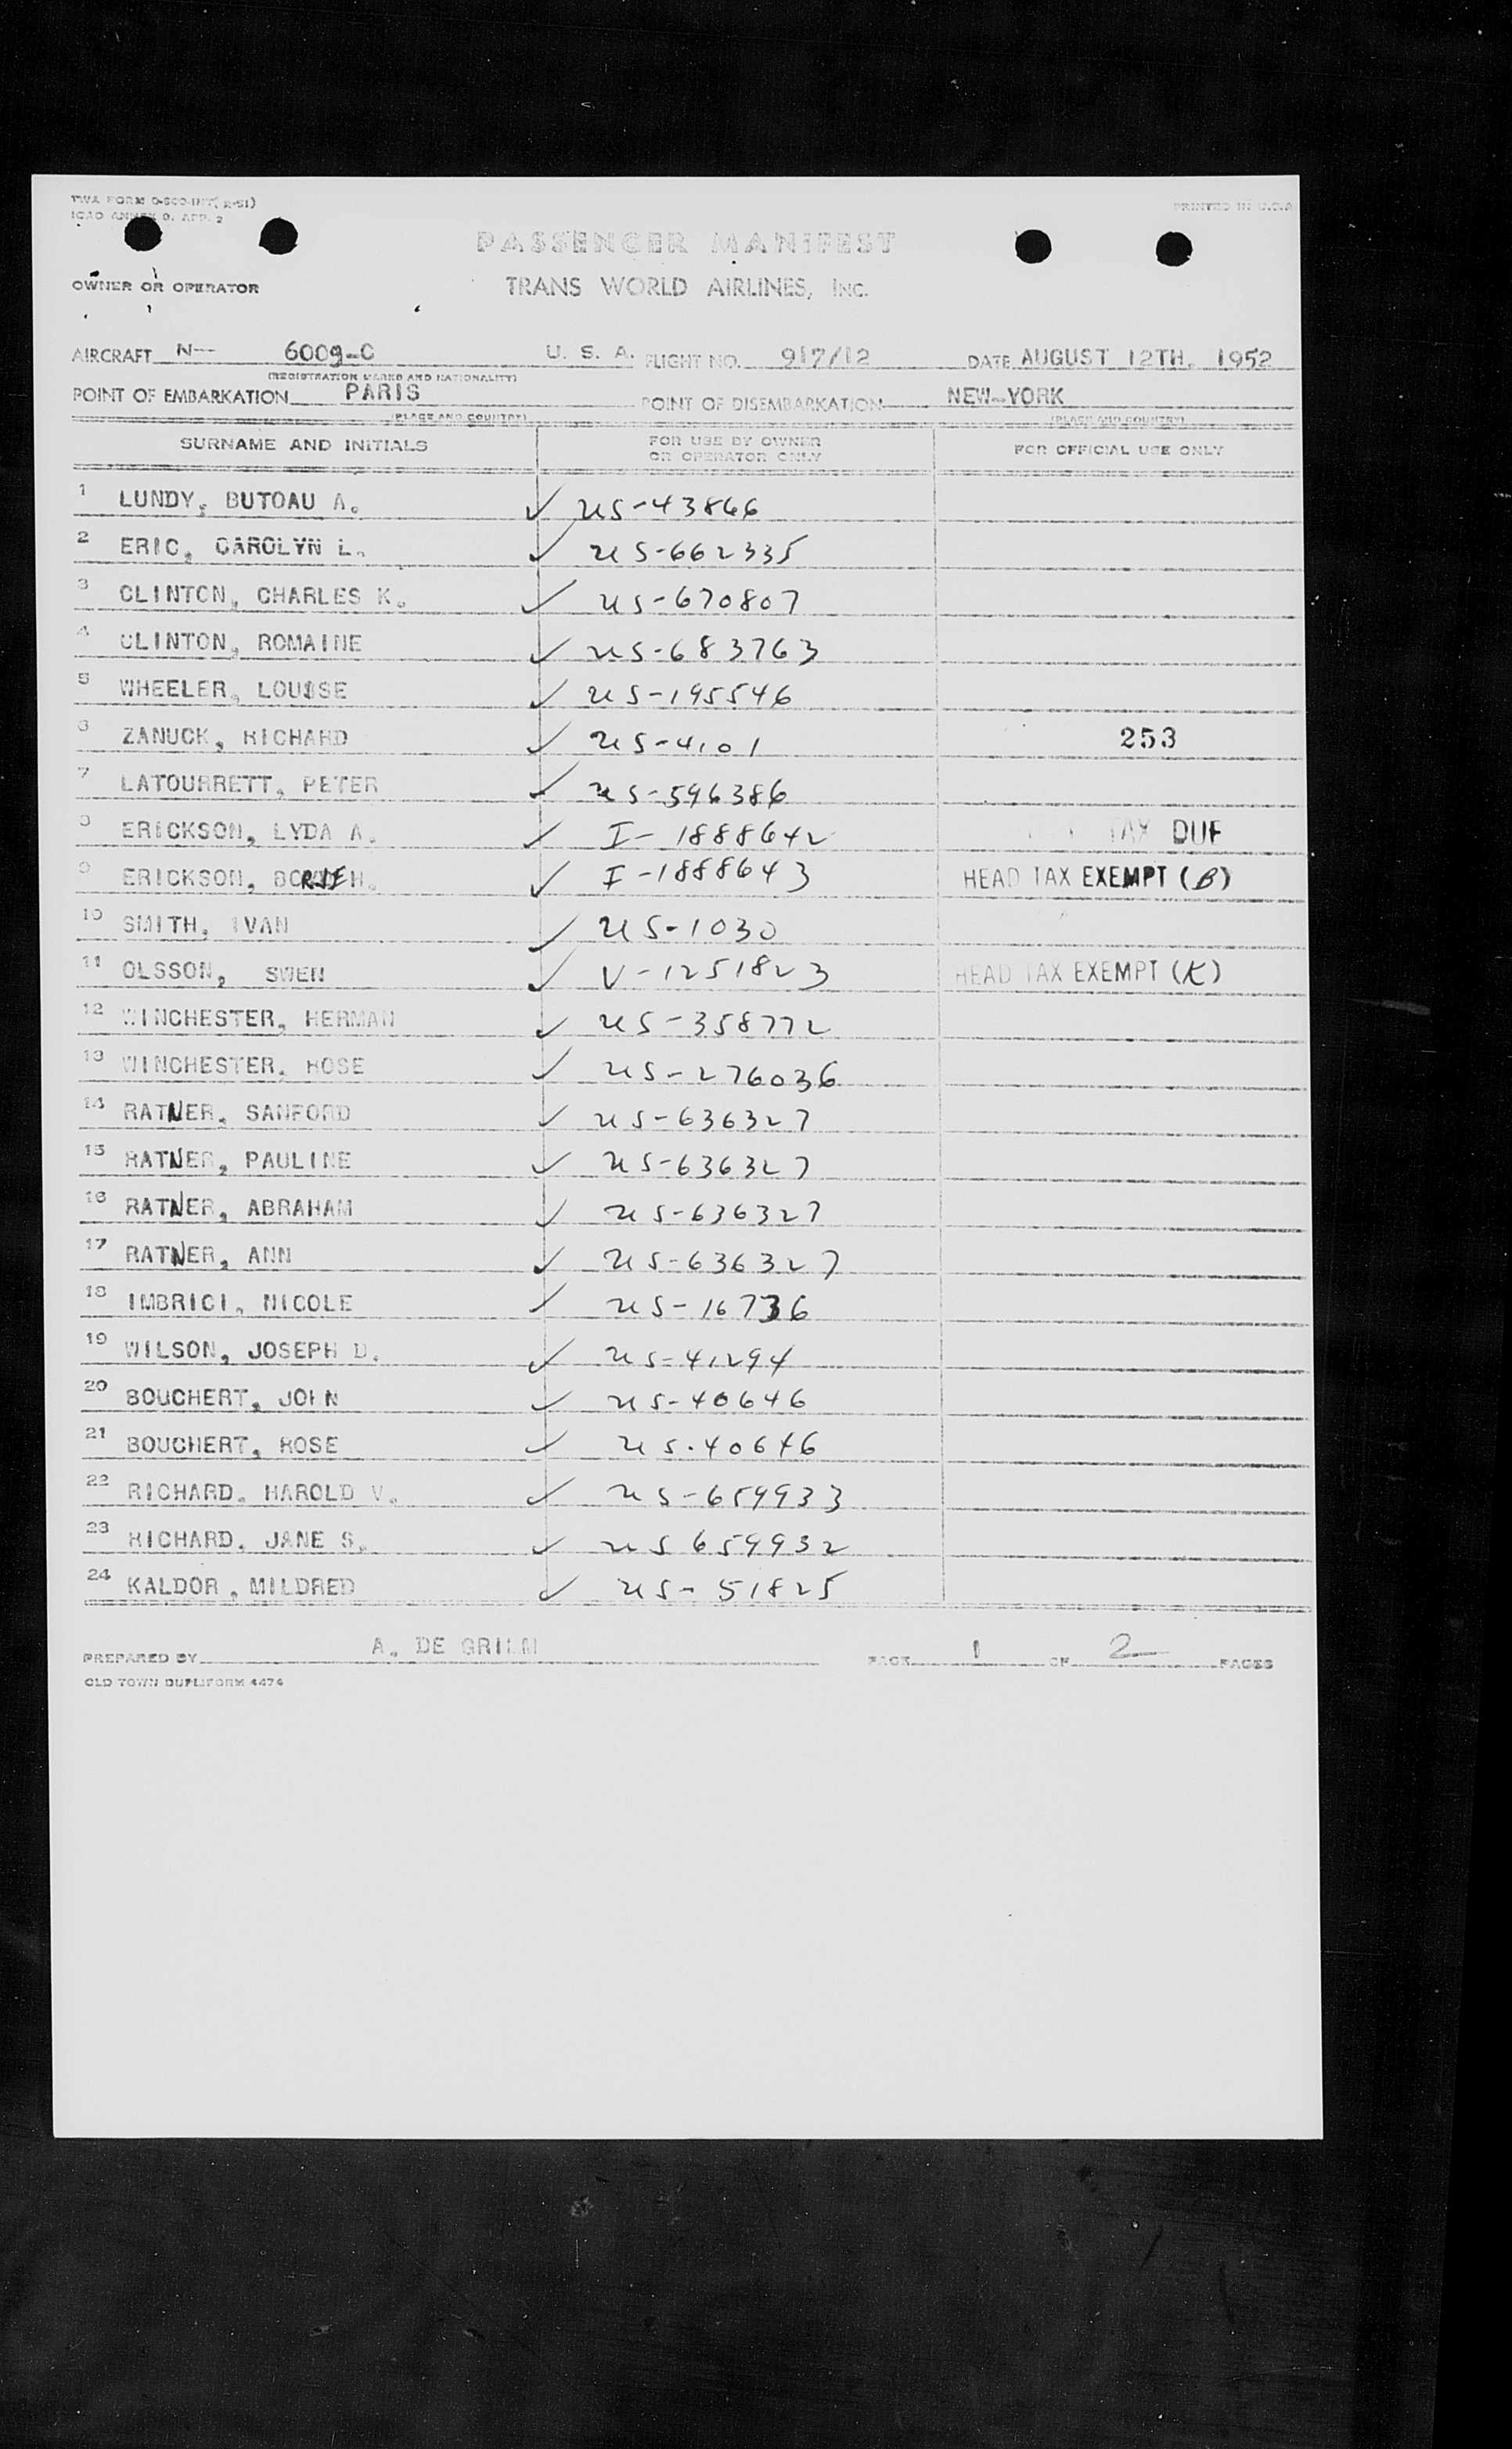 TWA FORM O-800-INT( 2-51)
ICAO ANNEX 9. APP. 2
PRINTED IN U.S.A
PASSENGER MANIFEST
OWNER OR OPERATOR
TRANS WORLD AIRLINES, INC.
AIRCRAFT N-- 6009-C U. S. A. FLIGHT NO. 917/12 DATE AUGUST 12TH. 1952
(REGISTRATION MARKS AND NATIONALITY)
POINT OF EMBARKATION PARIS POINT OF DISEMBARKATION NEW-YORK
(PLACE AND COUNTRY) (PLACE AND COUNTRY)
SURNAME AND INITIALS FOR USE BY OWNER OR OPERATOR ONLY FOR OFFICIAL USE ONLY
1 LUNDY, BUTOAU A. ✓ US-43866
2 ERIC, CAROLYN L. ✓ US-662335
3 CLINTON, CHARLES K. ✓ US-670807
4 CLINTON, ROMAINE ✓ US-683763
5 WHEELER, LOUISE ✓ US-195546
6 ZANUCK, RICHARD ✓ US-4101 253
7 LATOURRETT, PETER ✓ US-596386
8 ERICKSON, LYDA A. ✓ I-1888642 TAX DUE
9 ERICKSON, H. ✓ I-1888643 HEAD TAX EXEMPT (B)
10 SMITH, IVAN ✓ US-1030
11 OLSSON, SWEN ✓ V-1251823 HEAD TAX EXEMPT (K)
12 WINCHESTER, HERMAN ✓ US-358772
13 WINCHESTER, ROSE ✓ US-276036
14 RATNER, SANFORD ✓ US-636327
15 RATNER, PAULINE ✓ US-636327
16 RATNER, ABRAHAM ✓ US-636327
17 RATNER, ANN ✓ US-636327
18 IMBRICI, NICOLE ✓ US-16736
19 WILSON, JOSEPH D. ✓ US-41294
20 BOUCHERT, JOHN ✓ US-40646
21 BOUCHERT, ROSE ✓ US-40646
22 RICHARD, HAROLD V. ✓ US-659933
23 RICHARD, JANE S. ✓ US 659932
24 KALDOR, MILDRED ✓ US-51825
PREPARED BY A. DE GRIM PAGE 1 OF 2 PAGES
OLD TOWN DUPLIFORM 4474